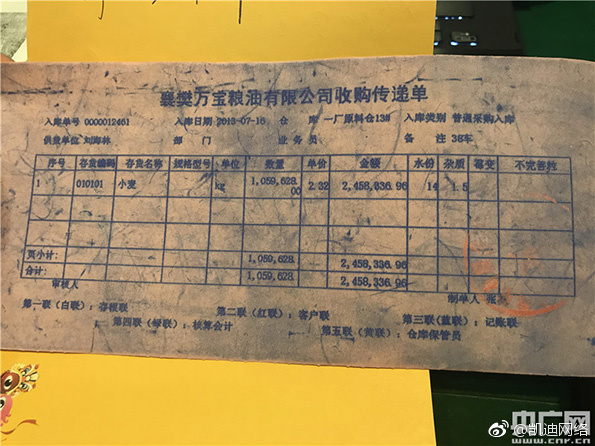 襄樊万宝粮油有限公司收购传递单
入库单号 0000012461 入库日期 2013-07-16 仓 库 一厂原料仓13# 入库类别 普通采购入库
供货单位 刘海林 部 门 业务员 备 注 38车
序号 存货编码 存货名称 规格型号 单位 数量 单价 金额 水份 杂质 霉变 不完善粒
1 010101 小麦 kg 1,059,628.00 2.32 2,458,336.96 14 1.5
页小计: 1,059,628. 2,458,336.96
合计: 1,059,628. 2,458,336.96
审核人 制单人 张
第一联（白联）: 存根联 第二联（红联）: 客户联 第三联（蓝联）: 记账联
第四联（绿联）: 核算会计 第五联（黄联）: 仓库保管员
央广网
www.cnr.cn
@凯迪网络